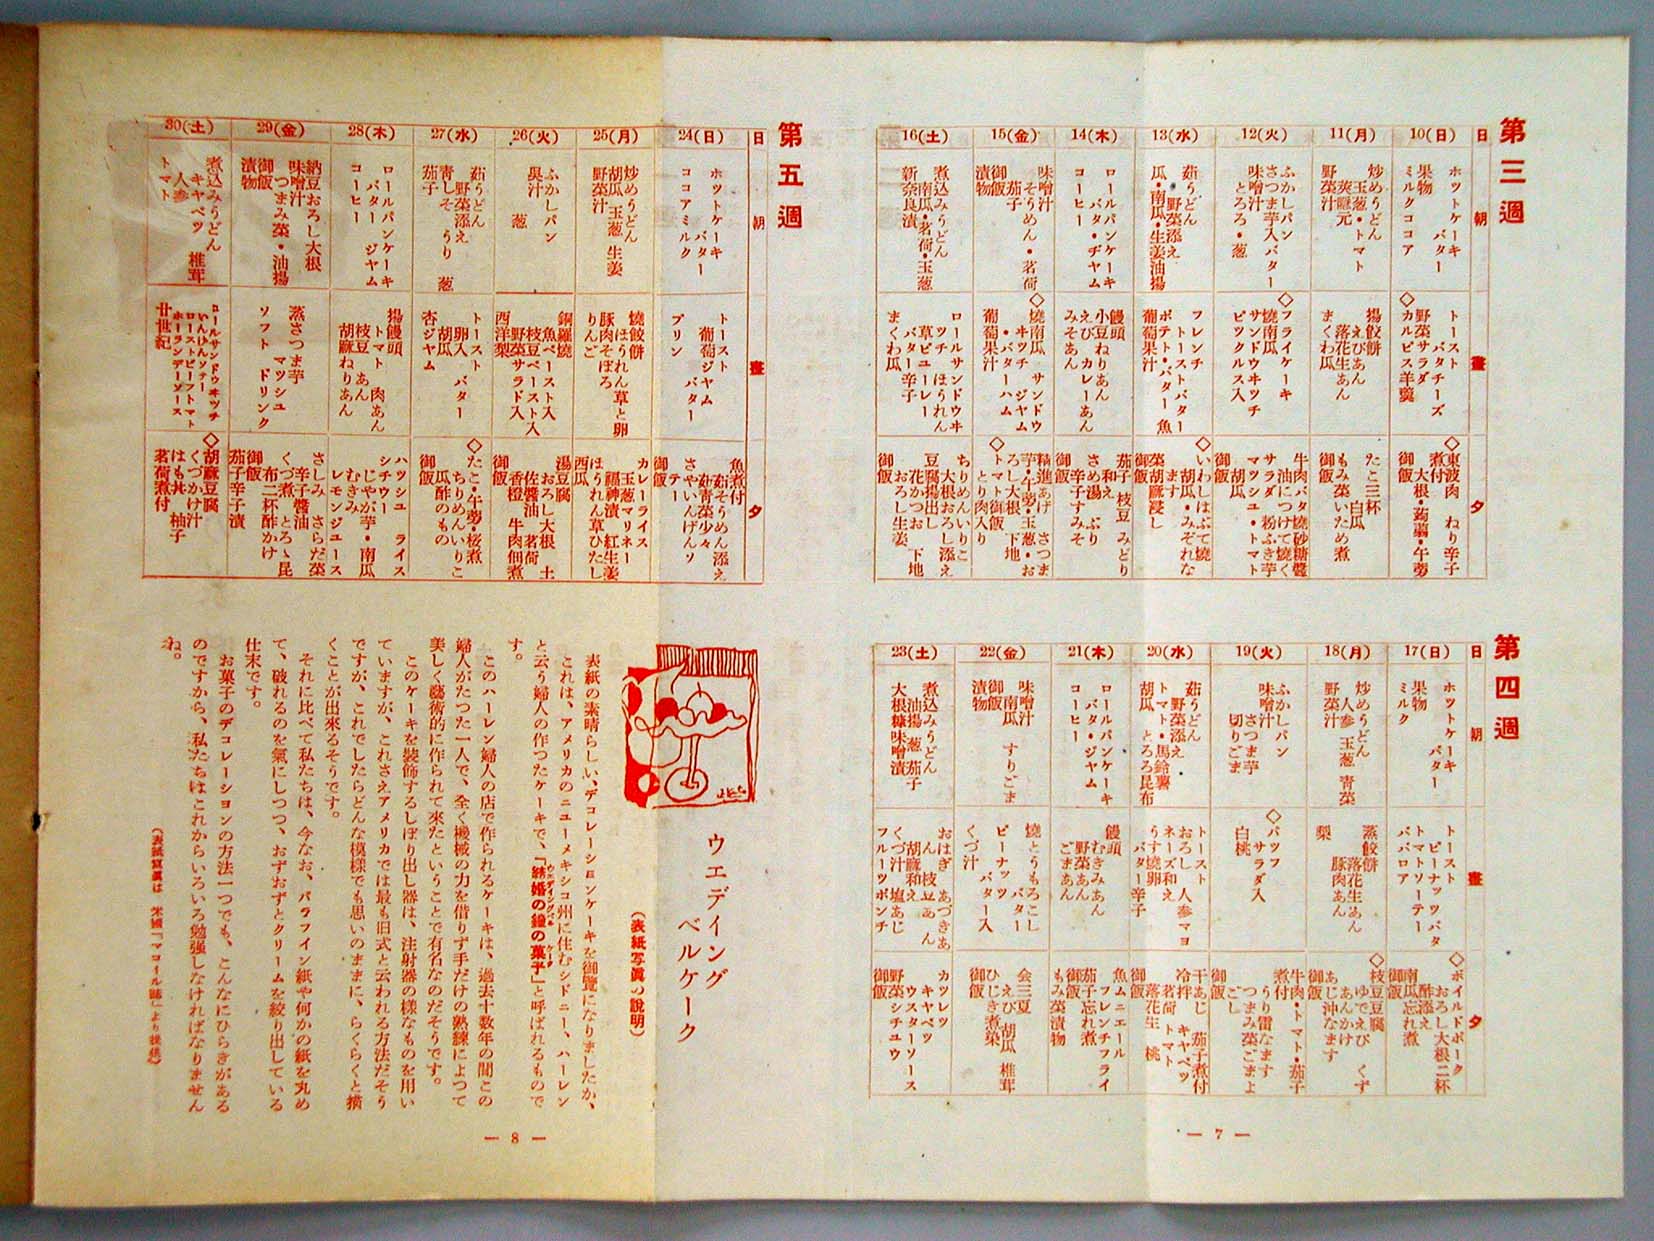 第三週
日 朝 晝 夕
10(日)
ホツトケーキ バター
果物
ミルクココア
トースト バタチーズ
野菜サラダ
◇カルピス羊羹
◇東波肉 ねり辛子
煮付 大根・蒟蒻・午蒡
御飯
11(月)
炒めうどん
玉葱・トマト
莢隠元
野菜汁
揚餃餅
えびあん
落花生あん
まくわ瓜
たこ三杯
もみ菜いため煮
白瓜
御飯
12(火)
ふかしパン
さつま芋入バター
味噌汁
とろろ・葱
◇フライケーキ
燒南瓜
サンドウヰツチ
ピツクルス入
牛肉バタ燒砂糖醬
油につけて燒く
サラダ 粉ふき芋
マツシユ・トマト
胡瓜
御飯
13(水)
茹うどん
野菜添え
瓜・南瓜・生姜油揚
フレンチ
トーストバター
ポテト・バター魚
葡萄果汁
◇いわしはぶて燒
胡瓜・みぞれな
ます
菜胡麻浸し
御飯
14(木)
ロールパンケーキ
バタ・ヂヤム
コーヒー
饅頭
小豆ねりあん
えび カレーあん
みそあん
茄子 枝豆 みどり
和え
さめ湯 ぶり
辛子すみそ
御飯
15(金)
味噌汁
そうめん・茗荷
茄子
御飯
漬物
◇燒南瓜 サンドウ
ヰツチ ジヤム
・バターハム
葡萄果汁
精進あげ さつま
芋・午蒡・玉葱・お
ろし大根 下地
◇トマト御飯
とり肉入り
16(土)
煮込みうどん
南瓜・茗荷・玉葱
新奈良漬
ロールサンドウヰ
ツチ ほうれん
草ピユーレー
バタ 辛子
まくわ瓜
ちりめんいりこ
大根おろし添え
豆腐揚出し
花かつお 下地
おろし生姜
御飯
第四週
日 朝 晝 夕
17(日)
ホツトケーキ バター
果物
ミルク
トースト
ピーナツツバタ
トマトソーテー
ババロア
◇ボイルドポーク
おろし大根二杯
酢添え
南瓜忘れ煮
御飯
18(月)
炒めうどん
人参 玉葱 青菜
野菜汁
蒸餃餅
落花生あん
豚肉あん
梨
◇枝豆豆腐
ゆでえび くず
あんかけ
あじ沖なます
御飯
19(火)
ふかしパン
味噌汁
さつま芋
切りごま
◇パツフ
サラダ入
白桃
牛肉・トマト・茄子
煮付
うり雷なます
つまみ菜ごまよ
ごし
御飯
20(水)
茹うどん
野菜添え
トマト・馬鈴薯
胡瓜 とろろ昆布
トースト
おろし 人参マヨ
ネーズ和え
うす燒卵
バター辛子
干あじ 茄子煮付
冷拌 キヤベツ
茗荷 トマト
落花生 桃
御飯
21(木)
ロールパンケーキ
バタ・ジヤム
コーヒー
饅頭
むきみあん
野菜あん
ごまあん
魚ムニエール
フレンチフライ
茄子忘れ煮
御飯
もみ菜漬物
22(金)
味噌汁
南瓜 すりごま
御飯
漬物
燒とうもろこし
バター
ピーナツツ
バター入
くづ汁
会三夏
えび 胡瓜 椎茸
ひじき煮染
御飯
23(土)
煮込みうどん
油揚 葱 茄子
大根糠味噌漬
おはぎ あづきあ
ん 枝豆あん
胡麻和え
くづ汁 塩あじ
フルーツポンチ
カツレツ
キヤベツ
ウスターソース
野菜シチユウ
御飯
— 7 —
第五週
日 朝 晝 夕
24(日)
ホツトケーキ
バター
ココアミルク
トースト
葡萄ジヤム
バター
プリン
魚煮付
茹そうめん添え
茹青菜少々
さやいんげんソ
テー
御飯
25(月)
炒めうどん
胡瓜 玉葱 生姜
野菜汁
燒餃餅
ほうれん草と卵
豚肉そぼろ
りんご
カレーライス
玉葱マリネー
福神漬 紅生姜
ほうれん草ひたし
西瓜
26(火)
ふかしパン
呉汁 葱
銅羅燒
魚ペースト入
枝豆ペースト入
野菜サラド入
西洋梨
湯豆腐
おろし大根 土
佐醬油 茗荷
香橙 牛肉佃煮
御飯
27(水)
茹うどん
野菜添え
青しそ うり 葱
茄子
トースト
卵入 バター
胡瓜
杏ジヤム
◇たこ・午蒡・桜煮
ちりめんいりこ
瓜酢のもの
御飯
28(木)
ロールパンケーキ
バター ジヤム
コーヒー
揚饅頭
トマト 肉あん
枝豆 あん
胡麻ねりあん
ハツシユ ライス
シチウー
じやが芋・南瓜
むきみ
レモンジユース
29(金)
納豆おろし大根
味噌汁
つまみ菜・油揚
御飯
漬物
蒸さつま芋
マツシユ
ソフト ドリンク
さしみ さらだ菜
辛子醬油
くづ煮 とろゝ昆
布二杯酢かけ
御飯
茄子辛子漬
30(土)
煮込みうどん
キヤベツ 椎茸
人参
トマト
ロールサンドウヰツチ
いんげんソテー
ローストビーフトマト
ホーランデーソース
廿世紀
◇胡麻豆腐
くづかけ汁
はも丼 柚子
茗荷煮付
ウエディング
ベルケーク
(表紙写眞の説明)
表紙の素晴らしい、デコレーションケーキを御覽になりましたか、
これは、アメリカのニユーメキシコ州に住むシドニー、ハーレン
と云う婦人の作つたケーキで、「結婚の鐘の菓子」と呼ばれるもので
す。
このハーレン婦人の店で作られるケーキは、過去十数年の間この
婦人がたつた一人で、全く機械の力を借りず手だけの熟練によつて
美しく藝術的に作られて來たということで有名なのだそうです。
このケーキを裝飾するしぼり出し器は、注射器の様なものを用い
ていますが、これさえアメリカでは最も旧式と云われる方法だそう
ですが、これでしたらどんな模様でも思いのままに、らくらくと描
くことが出來るそうです。
それに比べて私たちは、今なお、パラフイン紙や何かの紙を丸め
て、破れるのを氣にしつつ、おずおずとクリームを絞り出している
仕末です。
お菓子のデコレーションの方法一つでも、こんなにひらきがある
のですから、私たちはこれからいろいろ勉強しなければなりません
ね。
(表紙寫眞は 米國「マコイル誌」より提供)
— 8 —